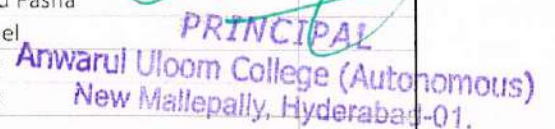 Pasha
el
PRINCIPAL
Anwarul Uloom College (Autonomous)
New Mallepally, Hyderabad-01.